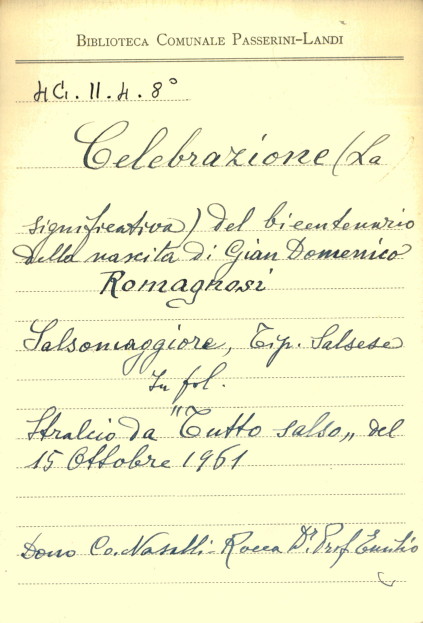 BIBLIOTECA COMUNALE PASSERINI-LANDI
4G.II.4.8°
Celebrazione (La
significativa) del bicentenario
della nascita di Gian Domenico
Romagnosi
Salsomaggiore, Tip. Salsese
In fol.
Stralcio da "Tutto salso„ del
15 Ottobre 1961
Dono Co. Nasalli-Rocca Dr. Prof Emilio